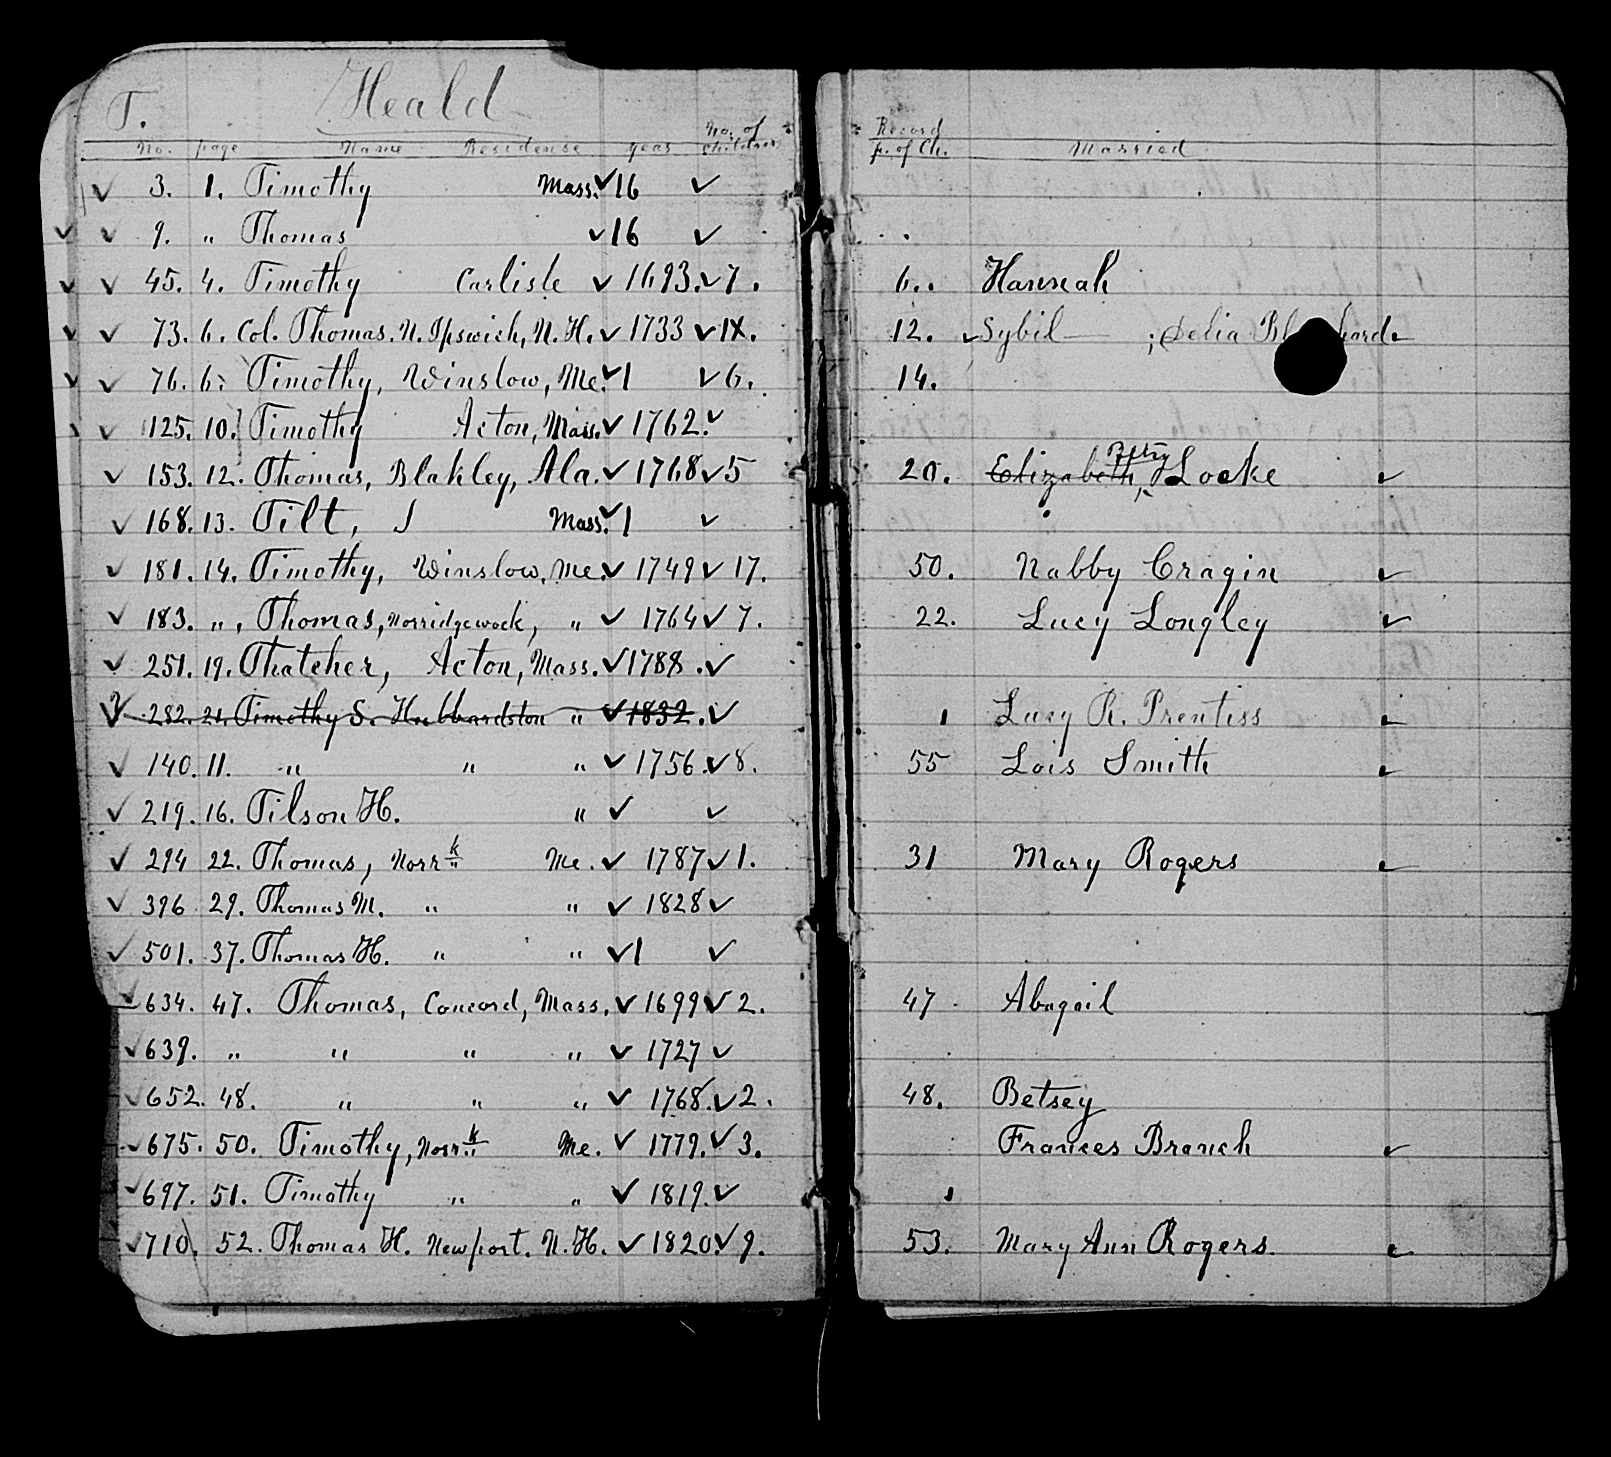 T. Heald
No. page Name Residense year No. of Children Record p. of Ch. Married
3. 1. Timothy Mass. 16
9. " Thomas 16
45. 4. Timothy Carlisle 1693. 7. 6. Hannah
73. 6. Col. Thomas. N. Ipswich, N. H. 1733 IX. 12. Sybil ; Delia
76. 6. Timothy, Winslow, Me. 1 6. 14.
125. 10. Timothy Acton, Mass. 1762.
153. 12. Thomas, Blakley, Ala. 1768 5 20. Elizabeth, Betsy Locke
168. 13. Tilt, J Mass. 1
181. 14. Timothy, Winslow, Me. 1749 17. 50. Nabby Cragin
183. ", Thomas, Norridgewock, " 1764 7. 22. Lucy Longley
251. 19. Thatcher, Acton, Mass. 1788.
282. 21. Timothy S. Hubbardston " 1832. Lucy R. Prentiss
140. 11. " " " 1756. 8. 55 Lois Smith
219. 16. Tilson H. "
294 22. Thomas, Norrk Me. 1787 1. 31 Mary Rogers
396 29. Thomas M. " " 1828
501. 37. Thomas H. " " 1
634. 47. Thomas, Concord, Mass. 1699 2. 47 Abagail
639. " " " " 1727
652. 48. " " " 1768. 2. 48. Betsey
675. 50. Timothy, Norrk Me. 1779. 3. Frances Branch
697. 51. Timothy " " 1819.
710. 52. Thomas H. Newport. N. H. 1820. 9. 53. Mary Ann Rogers.